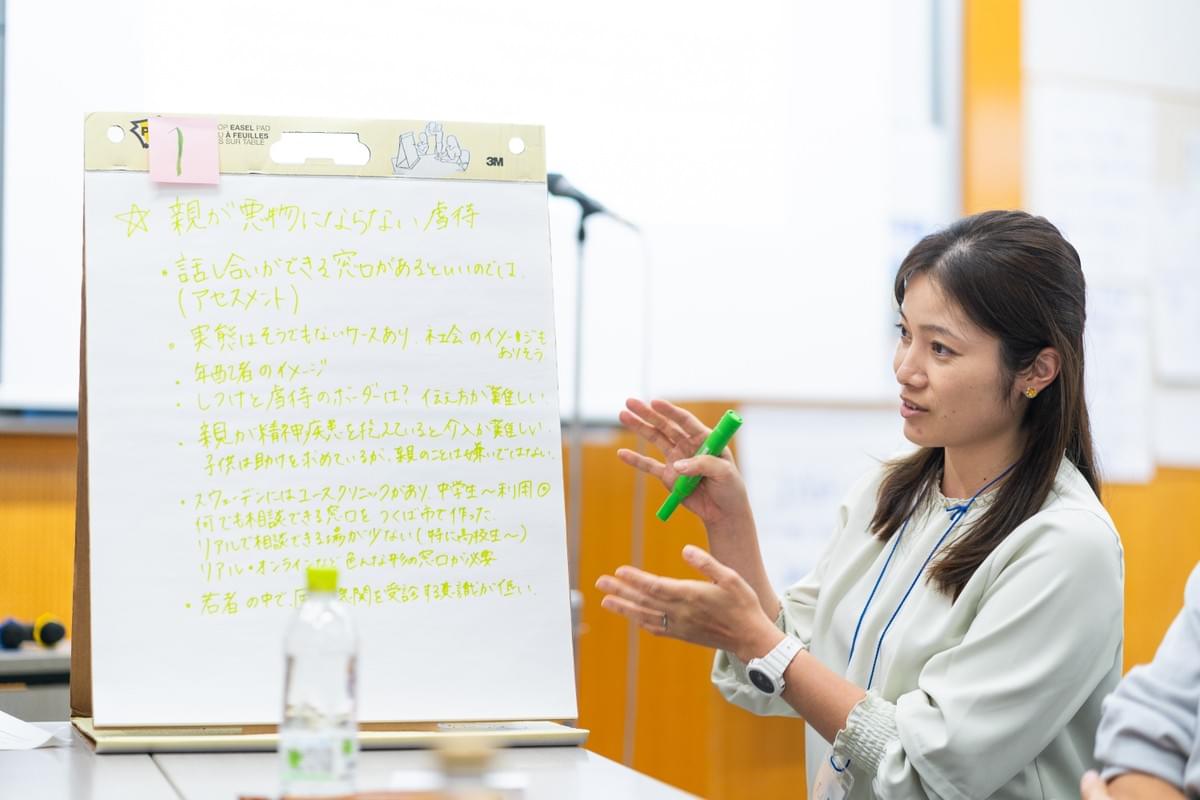 OP EASEL PAD
À FEUILLES
SUR TABLE
3M
1
☆ 親が悪物にならない虐待
・話し合いができる窓口があるといいのでは。
(アセスメント)
・実態はそうでもないケースあり。社会のイメージも
ありそう
・年配者のイメージ
・しつけと虐待のボーダーは? 伝え方が難しい。
・親が精神疾患を抱えていると介入が難しい。
子供は助けを求めているが、親のことは嫌いではない。
・スウェーデンにはユースクリニックがあり、中学生〜利用
何でも相談できる窓口を つくば市で作った。
リアルで相談できる場が少ない(特に高校生〜)
リアル・オンラインなど 色んな形の窓口が必要
・若者の中で、機関を受診する意識が低い。